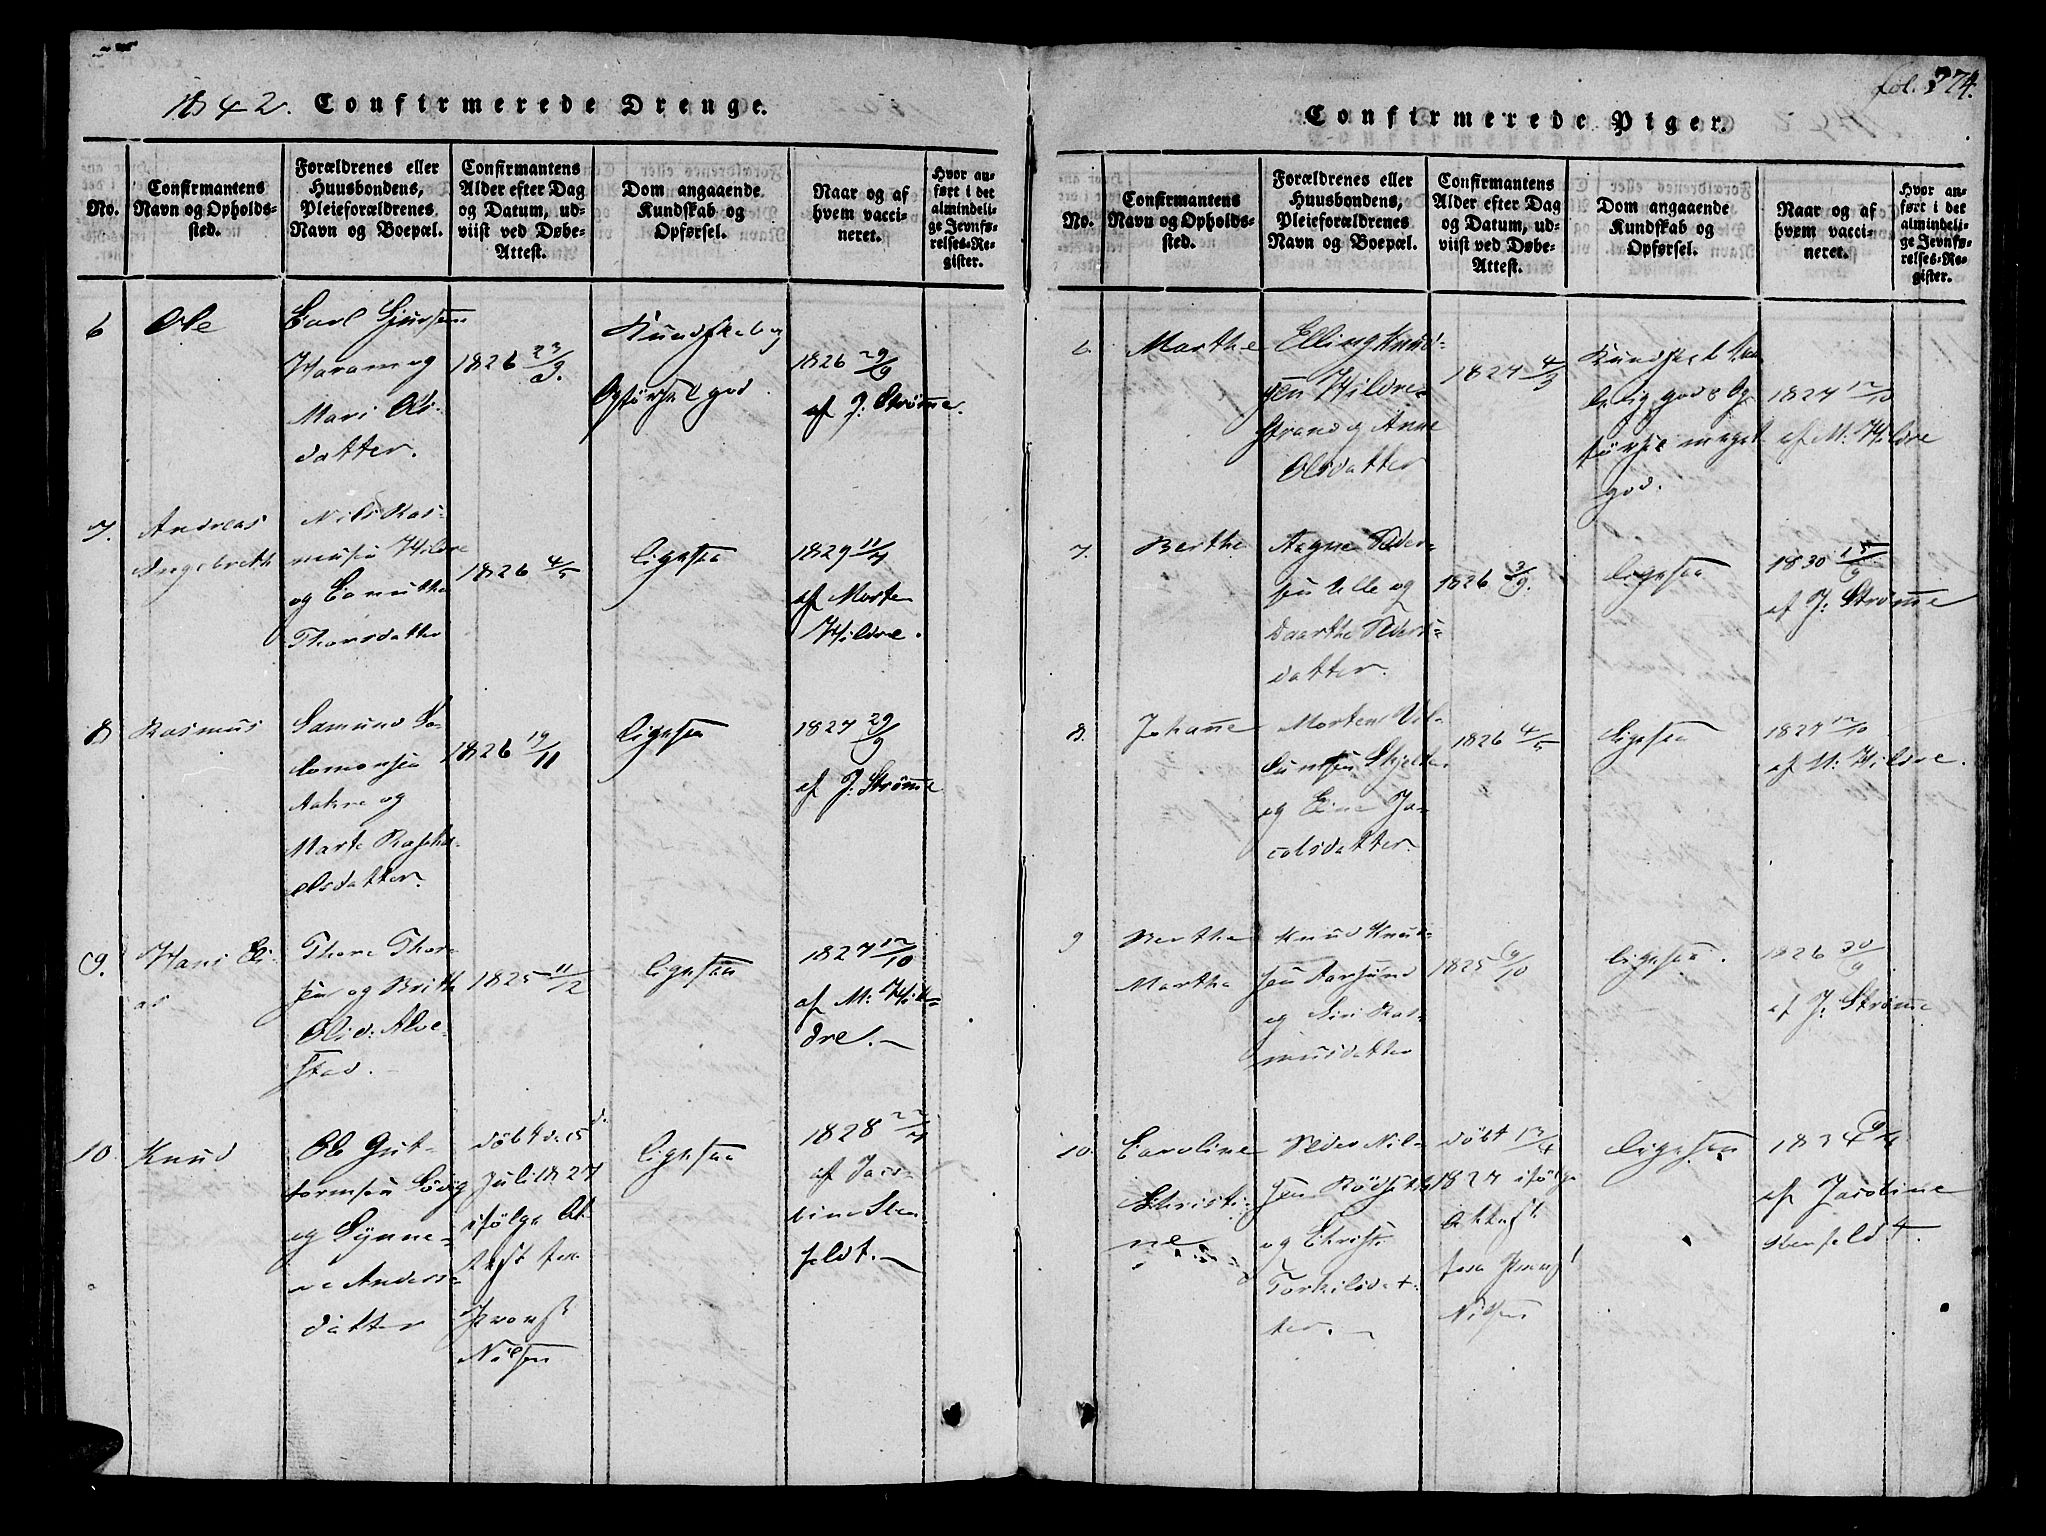 1842. Confirmerede Drenge.
No.
Confirmantens
Navn og Opholds-
sted.
Forældrenes eller
Huusbondens,
Pleieforældrenes
Navn og Boepæl.
Confirmantens
Alder efter Dag
og Datum, ud-
viist ved Døbe-
Attest.
Dom angaaende
Kundskab og
Opførsel.
Naar og af
hvem vacci-
neret.
Hvor an-
ført i det
almindeli-
ge Jevnfø-
relses-Re-
gister.
6
Ole
Haram og
Mari Ols-
datter.
1826 23/9.
Kundskab og
Opførsel god.
1826 29/9
af J: Strømme.
7.
Andreas
Ingebreth
Nils Ras-
musen Hildre
og
Thorsdatter
1826 4/5
ligesaa
1827 11/4
af Morten
Hildre.
8
Rasmus
Samund So-
lomonsen
Aakre og
Marte Raspha-
elsdatter.
1826 19/11
ligesaa
1827 29/9
af J: Strømme
9.
Hans Eli-
as
Thore Thor-
sen og Brith
Olsd: Alve-
stad.
1825 11/12
ligesaa
1827 12/10
af M: Hil-
dre.
10.
Knud
Ole Gut-
tormsen Søvig
og Synne-
ve Anders-
datter
døbt d. 15 d.
Juli 1827
ifølge At-
test fra
Provst
Nilsen
ligesaa
1828
af Jaco-
bine Sten-
feldt.
fol. 274.
Confirmerede Piger.
No.
Confirmantens
Navn og Opholds-
sted.
Forældrenes eller
Huusbondens,
Pleieforældrenes
Navn og Boepæl.
Confirmantens
Alder efter Dag
og Datum, ud-
viist ved Døbe-
Attest.
Dom angaaende
Kundskab og
Opførsel.
Naar og af
hvem vacci-
neret.
Hvor an-
ført i det
almindeli-
ge Jevnfø-
relses-Re-
gister.
6.
Marthe
Elling Knud-
sen Hildre-
strand og Anne
Olsdatter
1827 4/3
Kundskab
god & Op-
førsel meget
god.
1827 12/10
af M: Hildre
7.
Berthe
Aagne Peder-
sen Ulle og
Peders-
datter.
1826 3/9.
ligesaa
1830 15/9
af J: Strømme
8.
Johanne
Morten
Skjelten
og Eline Ja-
cobsdatter.
1826 4/5
ligesaa
1827 12/10
af M: Hildre.
9
Berthe
Martha
Knud Knud-
sen Aarsund
og Siri Ras-
musdatter
1825 9/10
ligesaa.
1826 30/9
af J: Strømme
10.
Caroline
Christi-
ne
Peder Nil-
sen Rødset
og Christi
Torkilsdat-
ter.
døbt 13/4
1827 ifølge
Attest
fra Provst
Nilsen
ligesaa
1834 9/4
af Jacobine
Stenfeldt.